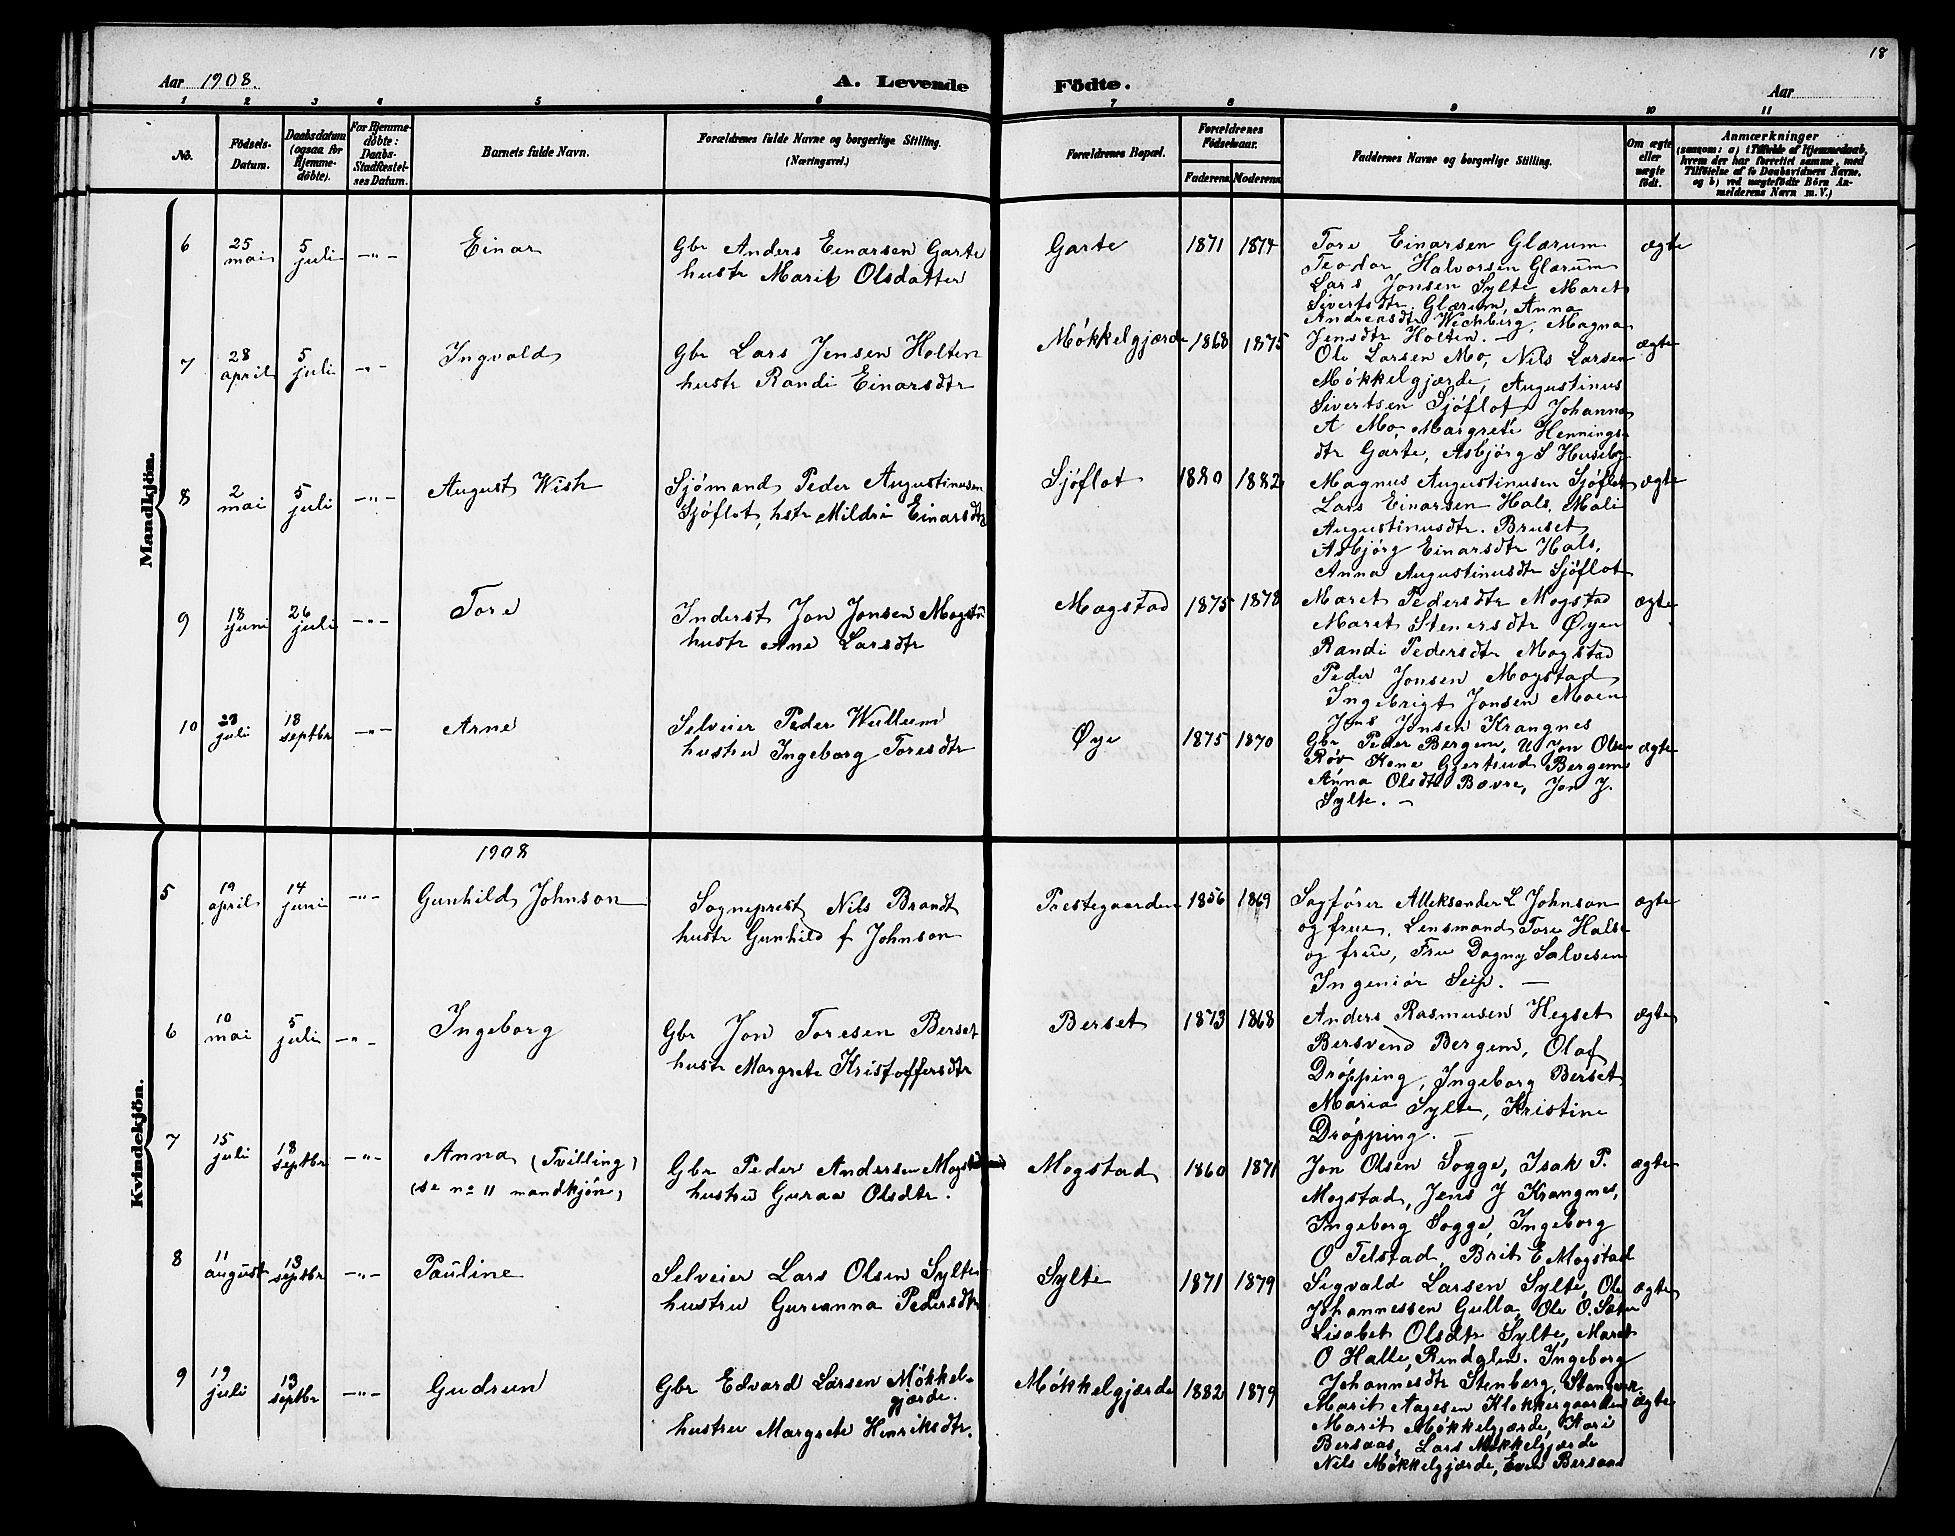 18
Aar 1908.
A. Levende Födte.
Aar
1 2 3 4 5 6 7 8 9 10 11
No.
Födsels-
Datum.
Daabsdatum
(ogsaa for
Hjemme-
döbte).
For Hjemme-
döbte:
Daabs-
Stadfæstel-
ses Datum.
Barnets fulde Navn.
Forældrenes fulde Navne og borgerlige Stilling.
(Næringsvei.)
Forældrenes Bopæl.
Forældrenes
Födselsaar.
Faderens Moderens
Faddernes Navne og borgerlige Stilling.
Om ægte
eller
uægte
födt.
Anmærkninger
(saasom: a) i Tilfælde af Hjemmedaab,
hvem der har forrettet samme, med
Tilföielse af to Daabsvidners Navne,
og b) ved uægtefödte Börn An-
melderens Navn m. V.)
Mandkjön.
6
25
mai
5
juli
-"-
Einar
Gbr Anders Einarsen Garte
hustr Marit Olsdatter
Garte
1871 1874
Tore Einarsen Glærum
Teodor Halvorsen Glærum
Lars Jonsen Sylte Maret
Sivertsdtr Glærum, Anna
Andreasdtr Wichberg, Magna
Jensdtr Holten. -
ægte
7
28
april
5
juli
-"-
Ingvald
Gbr Lars Jensen Holten
hustr Randi Einarsdtr
Møkkelgjærde
1868 1875
Ole Larsen Mo, Nils Larsen
Møkkelgjærde, Augustinus
Sivertsen Sjøflot Johanna
A Mo Margrete Hennings-
dtr Garte, Asbjörg S Huseby
ægte
8
2
mai
5
juli
-"-
August Wish
Sjømand Peder Augustinusen
Sjøflot, hstr Mildri Einarsdtr
Sjøflot
1880 1882
Magnus Augustinusen Sjøflot
Lars Einarsen Hals, Mali
Augustinusdtr. Bruset
Asbjørg Einarsdtr Hals,
Anna Augustinusdtr Sjøflot
ægte
9
18
juni
26
juli
-"-
Tore
Inderst Jon Jonsen Mogstad
hustr Ane Larsdtr
Mogstad
1875 1878
Maret Pedersdtr Mogstad
Maret Stenersdtr Øyen
Randi Pedersdtr Mogstad
Peder Jonsen Mogstad
Ingebrigt Jonsen Moen
Jens Jonsen Krangnes
ægte
10
28
juli
18
septbr
-"-
Arne
Selveier Peder Wullum
hustru Ingeborg Toresdtr
Øye
1875 1870
Gbr Peder Bergem, U Jon Olsen
Røv Kone Gjertrud Bergem
Anna Olsdtr Bævre, Jon J.
Sylte. -
ægte
Kvindekjön.
1908
5
19
april
14
juni
-"-
Gunhild Johnson
Sogneprest Nils Brandt
hustr Gunhild f Johnson
Prestegaarden
1856 1869
Sagfører Alleksander L Johnson
og frue, Lensmand Tore Halse
og frue, Fru Dagny Salvesen
Ingeniör Seip. -
ægte
6
10
mai
5
juli
-"-
Ingeborg
Gbr Jon Toresen Berset
hustr Margrete Kristoffersdtr
Berset
1873 1868
Anders Rasmusen Hegset
Bersvend Bergem, Olaf
Drøpping, Ingeborg Berset
Maria Sylte, Kristine
Drøpping. -
ægte
7
15
juli
13
septbr
-"-
Anna (Tvilling)
(se no 11 mandkjön)
Gbr Peder Andersen Mogstad
hustru Guraa Olsdtr.
Mogstad
1860 1871
Jon Olsen Sogge, Isak P.
Mogstad, Jens J Krangnes,
Ingeborg Sogge, Ingeborg
O Telstad, Brit E Mogstad
ægte
8
11
august
13
septbr
-"-
Pauline
Selveier Lars Olsen Sylte
hustru Gurianna Pedersdtr
Sylte
1871 1879
Sigvald Larsen Sylte, Ole
Johannessen Gulla, Ole O. Sæter
Lisabet Olsdtr Sylte, Maret
O Halle, Rindalen. Ingeborg
Johannesdtr Stenberg, Stangvik
ægte
9
19
juli
13
septbr
-"-
Gudrun
Gbr Edvard Larsen Møkkel-
gjærde.
hustru Margrete Henriksdtr.
Møkkelgjærde
1882 1879
Marit Aagesen Klokkergaarden
Marit Møkkelgjærde, Kari
Bersaas, Lars Møkkelgjærde
Nils Møkkelgjærde, Even Bersaas
ægte